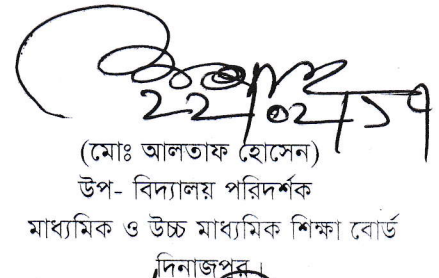 ২২/০২/১৭
(মোঃ আলতাফ হোসেন)
উপ- বিদ্যালয় পরিদর্শক
মাধ্যমিক ও উচ্চ মাধ্যমিক শিক্ষা বোর্ড
দিনাজপুর।